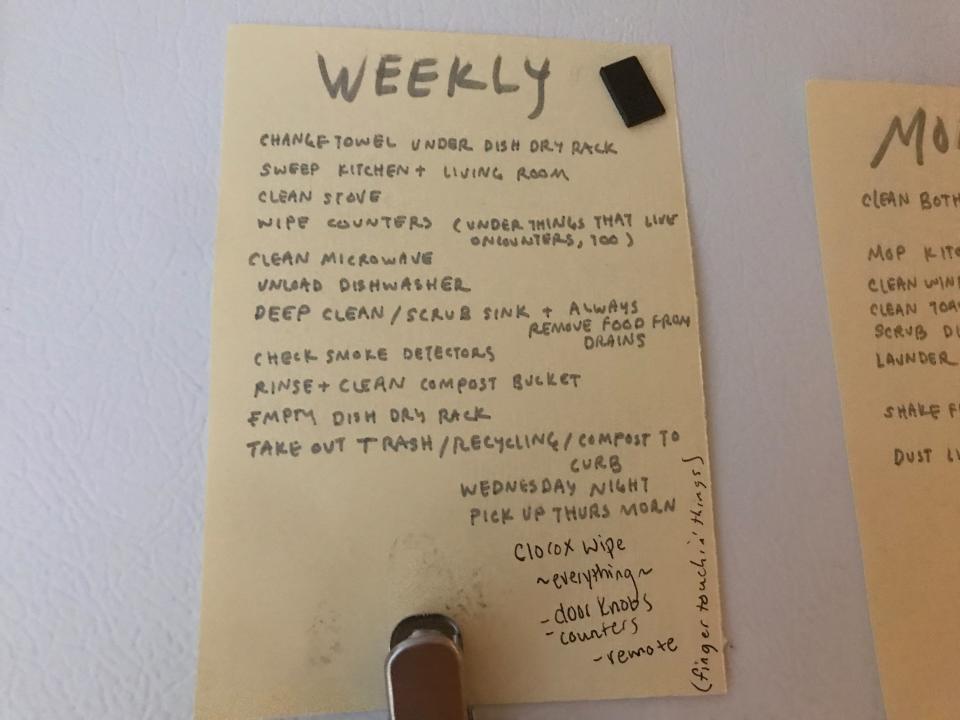 WEEKLY
CHANGE TOWEL UNDER DISH DRY RACK
SWEEP KITCHEN + LIVING ROOM
CLEAN STOVE
WIPE COUNTERS (UNDER THINGS THAT LIVE
ON COUNTERS, TOO)
CLEAN MICROWAVE
UNLOAD DISHWASHER
DEEP CLEAN/SCRUB SINK + ALWAYS
REMOVE FOOD FROM
DRAINS
CHECK SMOKE DETECTORS
RINSE + CLEAN COMPOST BUCKET
EMPTY DISH DRY RACK
TAKE OUT TRASH/RECYCLING/COMPOST TO
CURB
WEDNESDAY NIGHT
PICK UP THURS MORN
Clorox wipe
~everything~
- door knobs
- counters
- remote
(finger touchin' things)
MO
CLEAN BOTH
MOP KITC
CLEAN WIN
CLEAN TOA
SCRUB DI
LAUNDER
SHAKE F
DUST LI